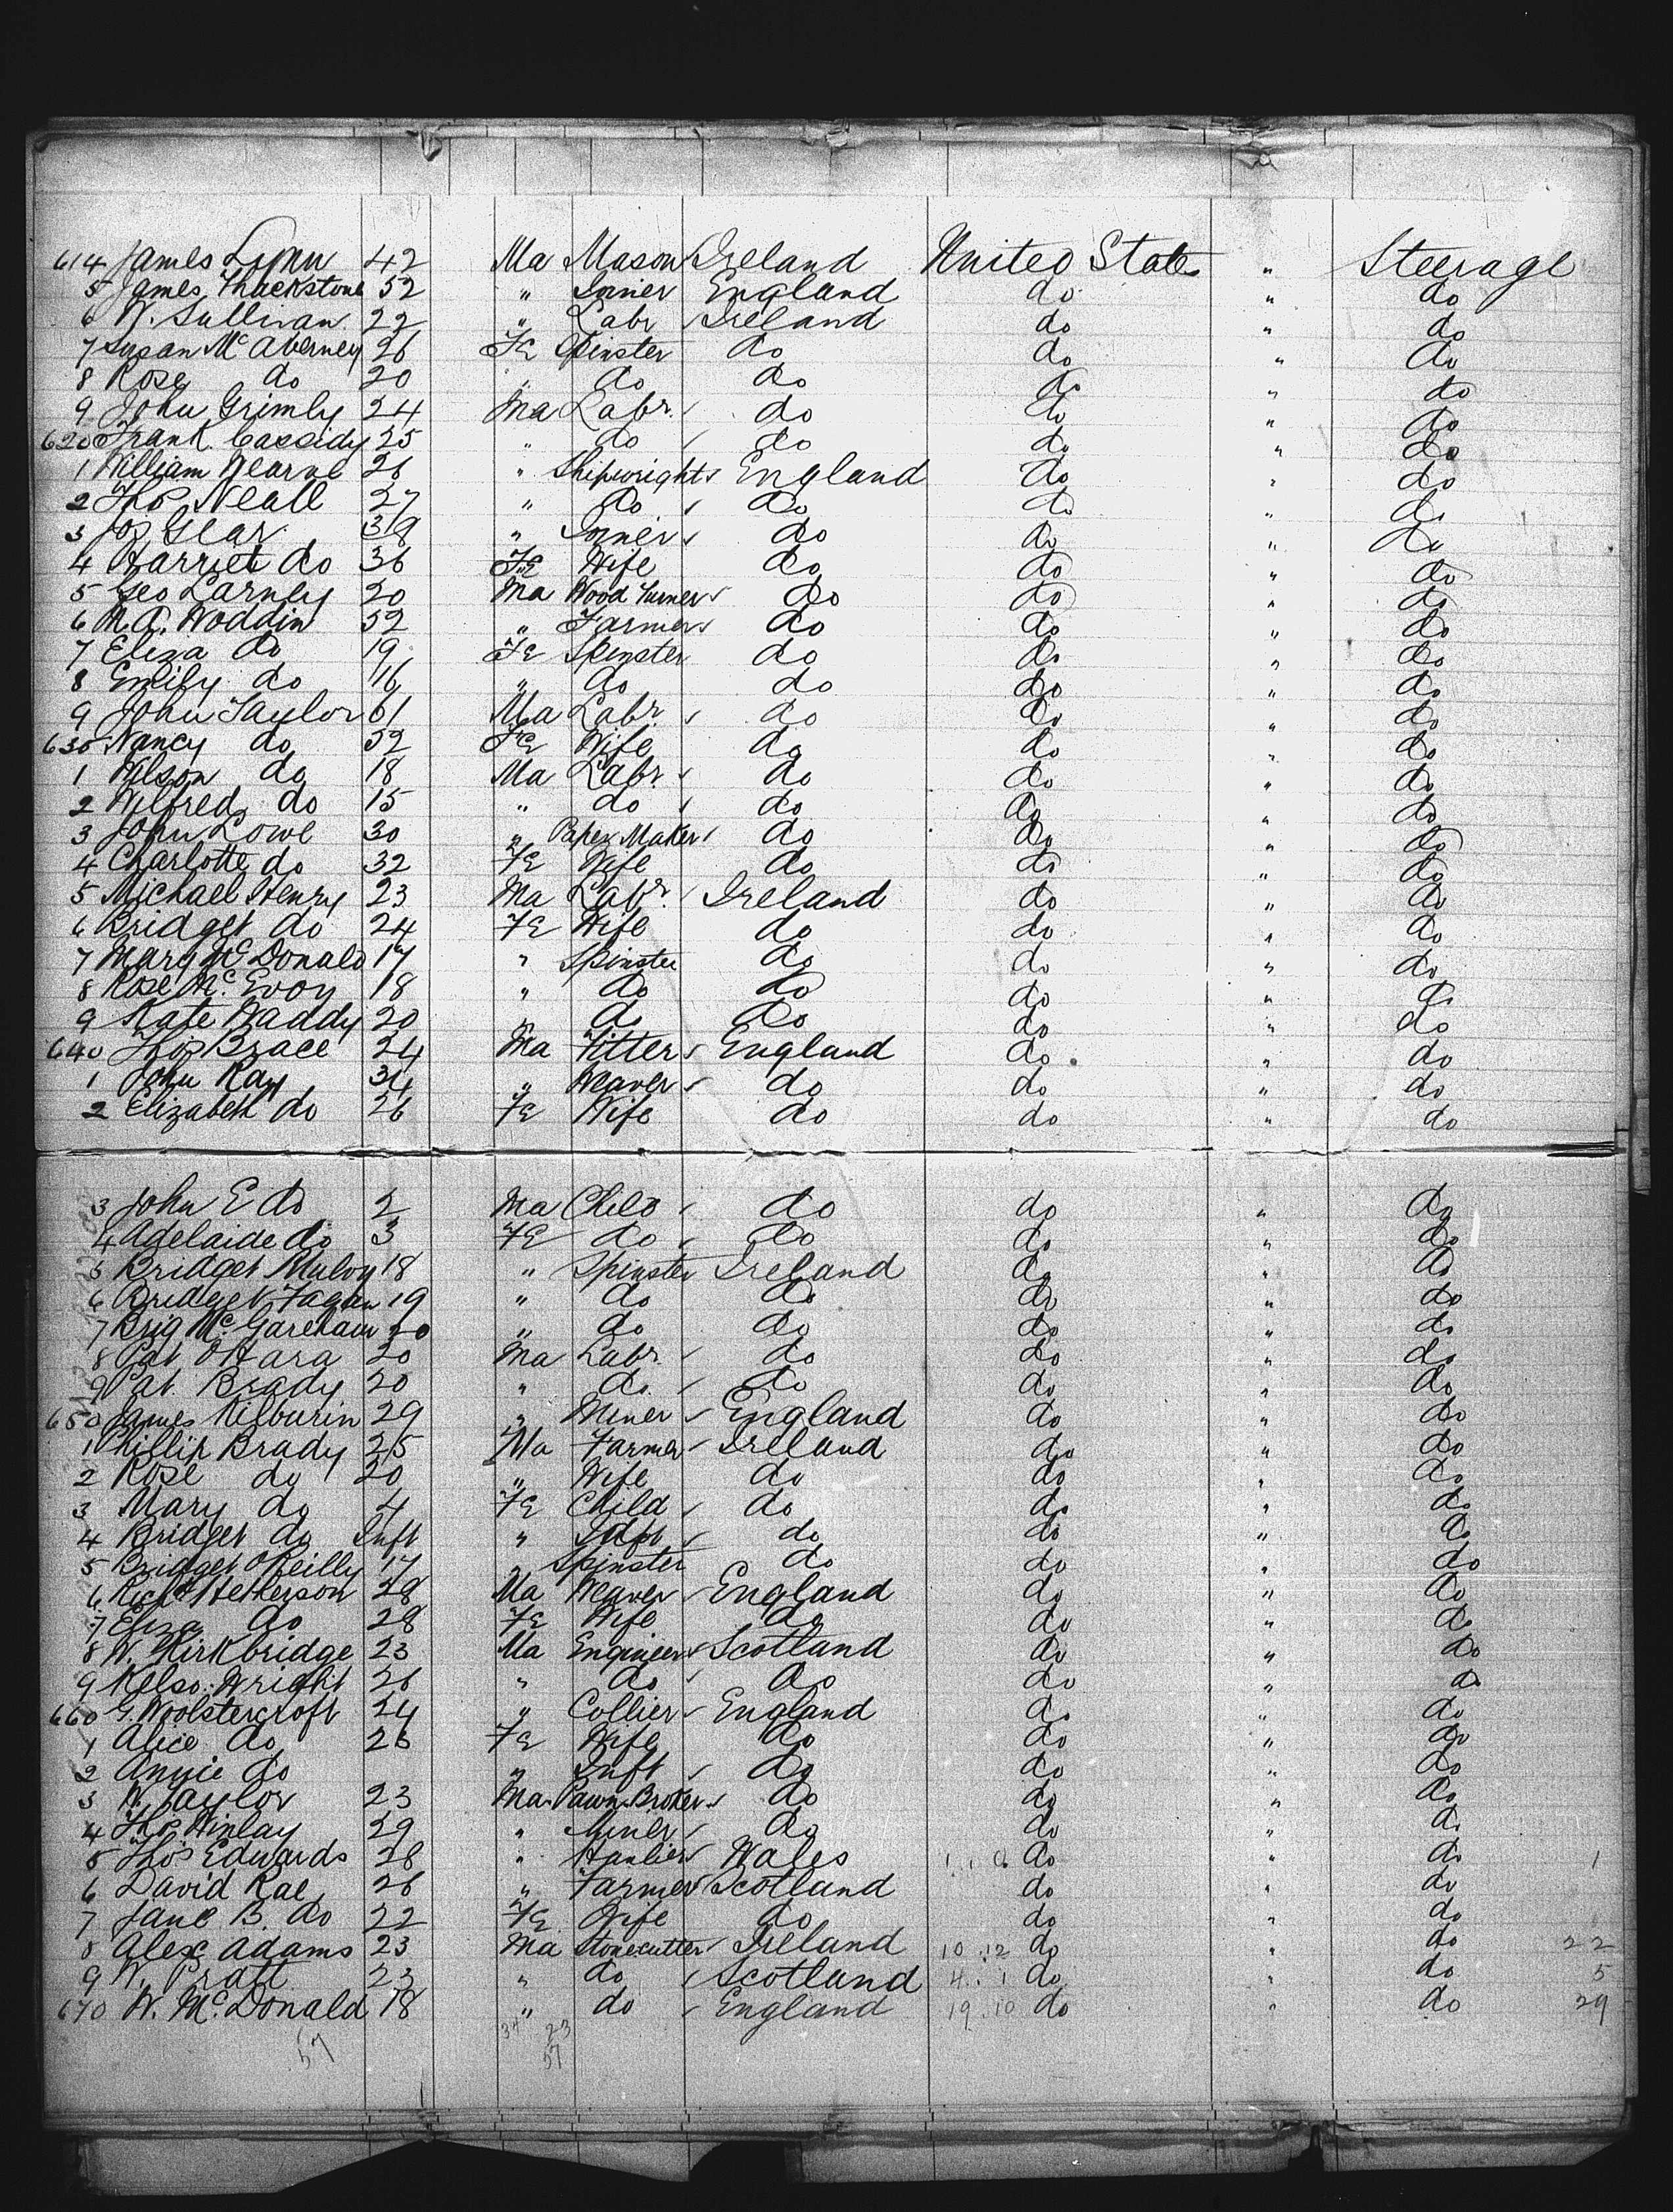 614 James Lynn 42 Ma Mason Ireland United States " Steerage
5 James Thackstone 52 " Joiner England do " do
6 W. Sullivan 22 " Labr Ireland do " do
7 Susan McAverney 26 Fe Spinster do do " do
8 Rose do 20 " do do do " do
9 John Grimly 24 Ma Labr. do do " do
620 Frank Cassidy 25 " do do do " do
1 William Wearne 26 " Shipwright England do " do
2 Thos Neall 27 " do do do " do
3 Jos Gear 39 " Joiner do do " do
4 Harriet do 36 Fe Wife do do " do
5 Geo Larney 20 Ma Wood Turner do do " do
6 M.A. Woddin 52 " Farmer do do " do
7 Eliza do 19 Fe Spinster do do " do
8 Emily do 16 " do do do " do
9 John Taylor 61 Ma Labr. do do " do
630 Nancy do 52 Fe Wife do do " do
1 Wilson do 18 Ma Labr. do do " do
2 Wilfred do 15 " do do do " do
3 John Lowe 30 " Paper Maker do do " do
4 Charlotte do 32 Fe Wife do do " do
5 Michael Henry 23 Ma Labr. Ireland do " do
6 Bridget do 24 Fe Wife do do " do
7 Mary McDonald 17 " Spinster do do " do
8 Rose McEvoy 18 " do do do " do
9 Kate Waddy 20 " do do do " do
640 Thos Brace 24 Ma Fitter England do " do
1 John Kay 34 " Weaver do do " do
2 Elizabeth do 26 Fe Wife do do " do
3 John E do 2 Ma Child do do " do
4 Adelaide do 3 Fe do do do " do
5 Bridget Mulvy 18 " Spinster Ireland do " do
6 Bridget Fagan 19 " do do do " do
7 Brig McGarekam 20 " do do do " do
8 Pat OHara 20 Ma Labr. do do " do
9 Pat. Brady 20 " do. do do " do
650 James Kilburin 29 " Miner England do " do
1 Phillip Brady 25 Ma Farmer Ireland do " do
2 Rose do 20 " Wife do do " do
3 Mary do 4 Fe Child do do " do
4 Bridget do Inft " Inft do do " do
5 Bridget OReilly 17 " Spinster do do " do
6 Richd Hetherson 28 Ma Weaver England do " do
7 Eliza do 28 Fe Wife do do " do
8 W. Kirkbridge 23 Ma Engineer Scotland do " do
9 Kelso Wright 26 " do do do " do
660 G. Woolstercroft 24 " Collier England do " do
1 Alice do 26 Fe Wife do do " do
2 Annie do " Inft do do " do
3 W. Taylor 23 Ma Pawn Broker do do " do
4 Thos Winlay 29 " Miner do do " do
5 Thos Edwards 28 " Wales do " do 1
6 David Rae 26 " Farmer Scotland do " do
7 Jane B. do 22 Fe Wife do do " do
8 Alex Adams 23 Ma Stonecutter Ireland 10 .. 12 do " do 22
9 W. Pratt 23 " do Scotland 4 .. 1 do " do 5
670 W. McDonald 18 " do England 19 .. 10 do " do 29
34 23
57 57